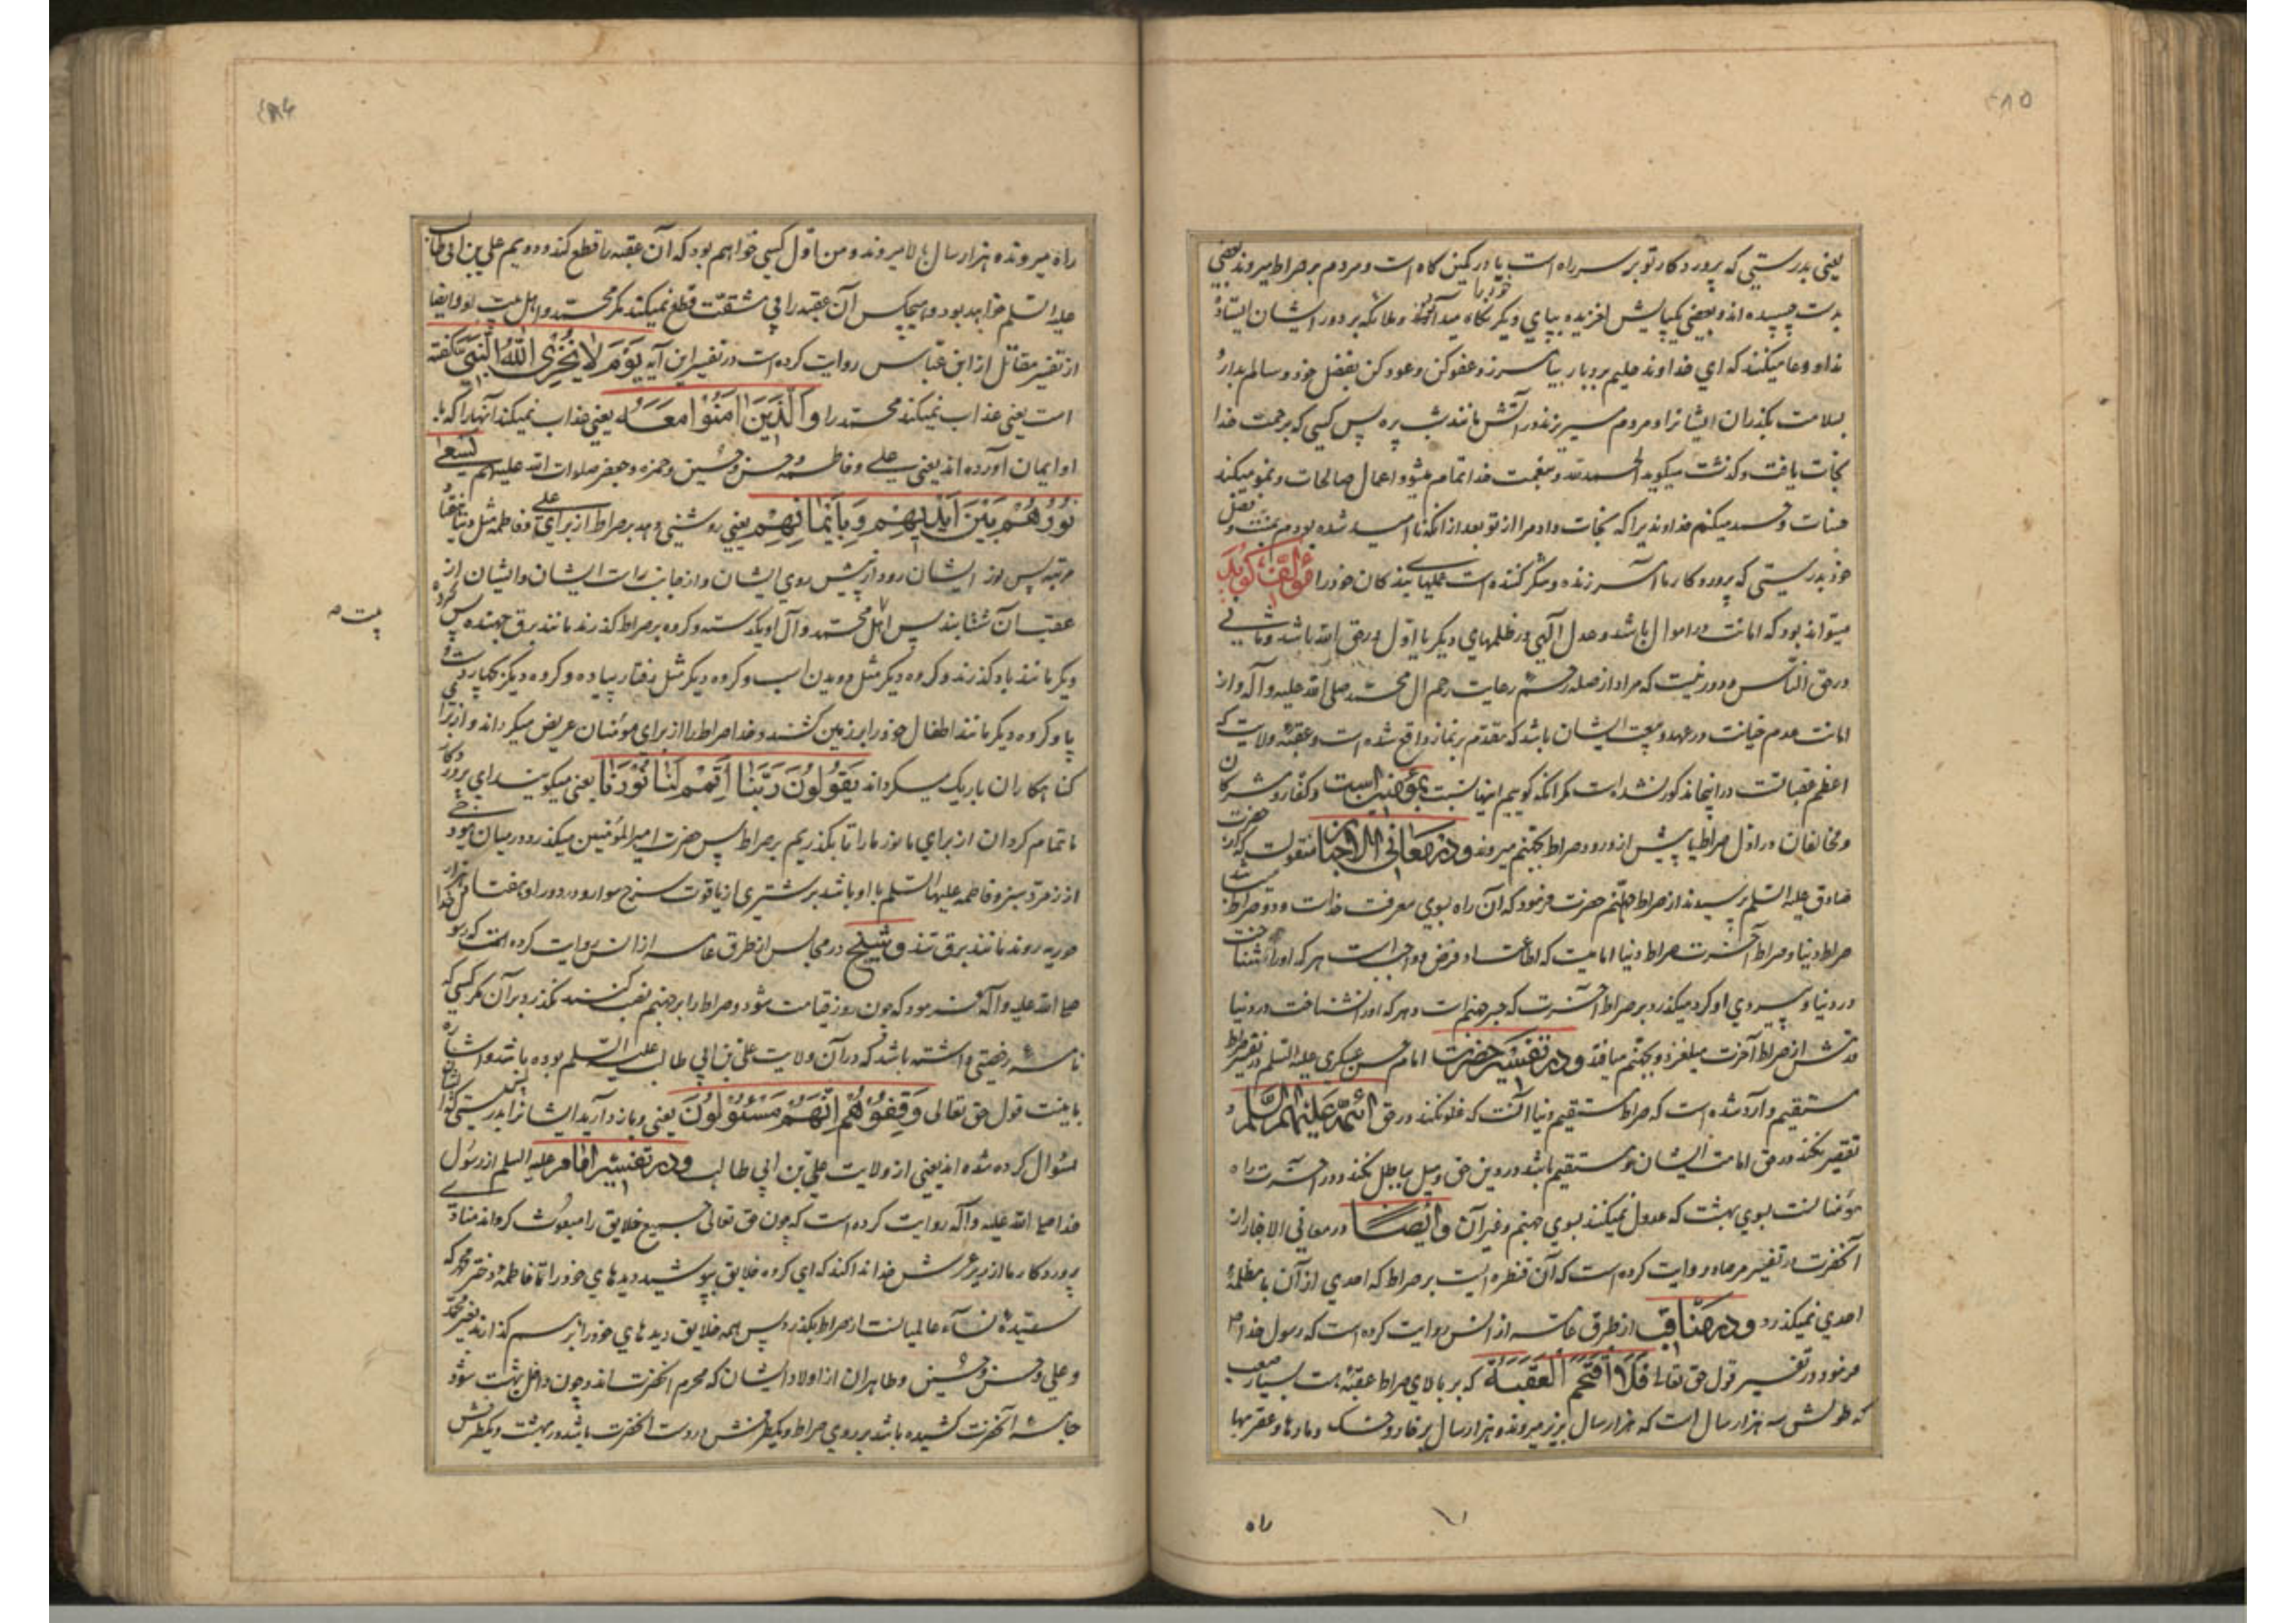 ٤٨٥
یعنی بدرستی که پروردکار تو بر سر راه است یا در کمین کاه است و مردم بر صراط میروند بعضی
بدست چسپیده اند و بعضی یکپایش لغزیده بپای دیکر خود را نکاه میدارند و ملائکه بر دور ایشان ایستاده
نداو دعا میکنند که ای خداوند حلیم بردبار بیامرز و عفو کن وعود کن بفضل خود و سالم بدار و
بسلامت بکذران ایشانرا و مردم میریزند در آتش مانند شب پره پس کسی که برحمت خدا
نجات یافت و کذشت میکوید الحمد لله و بنعمت خدا تمام میشود اعمال صالحات و نمو میکند
حسنات و حمد میکنم خداوندیرا که نجات داد مرا از تو بعد از آنکه نا امید شده بودم بمنت و فضل
خود بدرستی که پروردکار ما آمرزنده و شکر کننده است عملهای بندکان خود را مؤلف کوید
میتواند بود که امانت در اموال باشد و عدل الهی در ظلمهای دیکر یا اول در حق الله باشد و ثانی
در حق الناس و دور نیست که مراد از صله رحم رعایت رحم ال محمد صلی الله علیه و آله و از
امانت عدم خیانت در عهد و بیعت ایشان باشد که مقدم بر نماز واقع شده است و عقبهٔ ولایت که
اعظم عقباتست در اینجا مذکور نشده است مکر انکه کوییم اینها نسبت بمؤمنین است و کفار و مشرکان
و مخالفان در اول صراط یا پیش از ورود صراط بجهنم میروند و در معانی الاخبار منقولست که از حضرت
صادق علیه السلم پرسیدند از صراط حضرت فرمود که آن راه بسوی معرفت خداست و دو صراط میباشد
صراط دنیا و صراط آخرت صراط دنیا امامیست که اطاعتش فرض و واجبست هر که اورا شناخت
در دنیا و پیروی او کرد میکذرد بر صراط آخرت که جسر جهنم است و هر که اورا نشناخت در دنیا
قدمش از صراط آخرت میلغزد و بجهنم میافتد و در تفسیر حضرت امام حسن عسکری علیه السلم در تفسیر صراط
مستقیم وارد شده است که صراط مستقیم دنیا آنست که غلو نکند در حق ائمه علیهم السلم و
تقصیر نکند در حق امامت ایشان و مستقیم باشد در دین حق و میل بباطل نکند و در آخرت راه
مؤمنانست بسوی بهشت که عدول نمیکنند بسوی جهنم و غیر آن و ایضا در معانی الاخبار از
آنحضرت در تفسیر مرصاد روایت کرده است که آن قنطره ایست بر صراط که احدی از آن با مظلمهٔ
احدی نمیکذرد و در مناقب از طرق عامه از انس روایت کرده است که رسول خدا ص
فرمود در تفسیر قول حق تعالی فلا اقتحم العقبة که بر بالای صراط عقبهٔ هست بسیار صعب
که طولش سه هزار سال است که هزار سال بزیر میروند و هزار سال بر خار و خسک و مارها و عقربها
راه
٤٨٦
راه میروند و هزار سال بالا میروند و من اول کسی خواهم بود که آن عقبه را قطع کند و دویم علی بن ابی طالب
علیه السلم خواهد بود و هیچکس آن عقبه را بی مشقت قطع نمیکند مکر محمد و اهل بیت او و ایضا
از تفسیر مقاتل از ابن عباس روایت کرده است در تفسیر این آیه یَوْمَ لَا یُخْزِی اللّٰهُ النَّبِیَّ کفته
است یعنی عذاب نمیکند محمد را وَالَّذِینَ اٰمَنُوْا مَعَهُ یعنی عذاب نمیکند آنهارا که با
او ایمان آورده اند یعنی علی و فاطمه و حسن و حسین و حمزه و جعفر صلوات الله علیهم یَسْعٰی
نُوْرُهُمْ بَیْنَ اَیْدِیْهِمْ وَبِاَیْمَانِهِمْ یعنی روشنی دهد بر صراط از برای علی و فاطمه مثل دنیا هفتاد
مرتبه پس نور ایشان رود از پیش روی ایشان و از جانب راست ایشان و ایشان از
عقب آن شتابند پس اهل بیت محمد و آل او یکدسته و کروه بر صراط کذرند مانند برق جهنده پس کروه
بیت ص
دیکر مانند باد کذرند و کروه دیکر مثل دویدن اسب و کروه دیکر مثل رفتار پیاده و کروه دیکر بچهار دست و
پا و کروه دیکر مانند اطفال خود را بر زمین کشند و خدا صراط را از برای مومنان عریض میکرداند و از برای
کناهکاران باریک میکرداند یَقُوْلُوْنَ رَبَّنَا اَتْمِمْ لَنَا نُوْرَنَا یعنی میکویند ای پروردکار
ما تمام کردان از برای ما نور مارا تا بکذریم بر صراط پس حضرت امیر المؤمنین میکذرد در میان هودجی
از زمرد سبز و فاطمه علیها السلم با او باشد بر شتری از یاقوت سرخ سوار و در دور او هفتاد هزار
حوریه روند مانند برق تند و شیخ در مجالس از طرق عامه از انس روایت کرده است که رسول خدا
صلی الله علیه و آله فرمود که چون روز قیامت شود و صراط را بر جهنم نصب کنند نکذرد بر آن مکر کسی که
نامه رخصتی داشته باشد که در آن ولایت علی بن ابی طالب علیه السلم بوده باشد و اشاره
باینست قول حق تعالی وَقِفُوْهُمْ اِنَّهُمْ مَسْئُوْلُوْنَ یعنی و باز دارید ایشانرا بدرستی که ایشان
سئوال کرده شده اند یعنی از ولایت علی بن ابی طالب و در تفسیر امام علیه السلم از رسول
خدا صلی الله علیه و آله روایت کرده است که چون حق تعالی جمیع خلایق را مبعوث کرداند منادی
پروردکار ما از زیر عرش خدا ندا کند که ای کروه خلایق بپوشید دیدهای خود را تا فاطمه دختر محمد که
سیدهٔ نساء عالمیانست از صراط بکذرد پس همه خلایق دیدهای خود را بر هم کذارند بغیر محمد
و علی و حسن و حسین و طاهران از اولاد ایشان که محرم آنحضرت اند و چون داخل بهشت شود
جامهٔ آنحضرت کشیده باشد بر روی صراط و یکطرفش در دست آنحضرت باشد در بهشت و یکطرفش